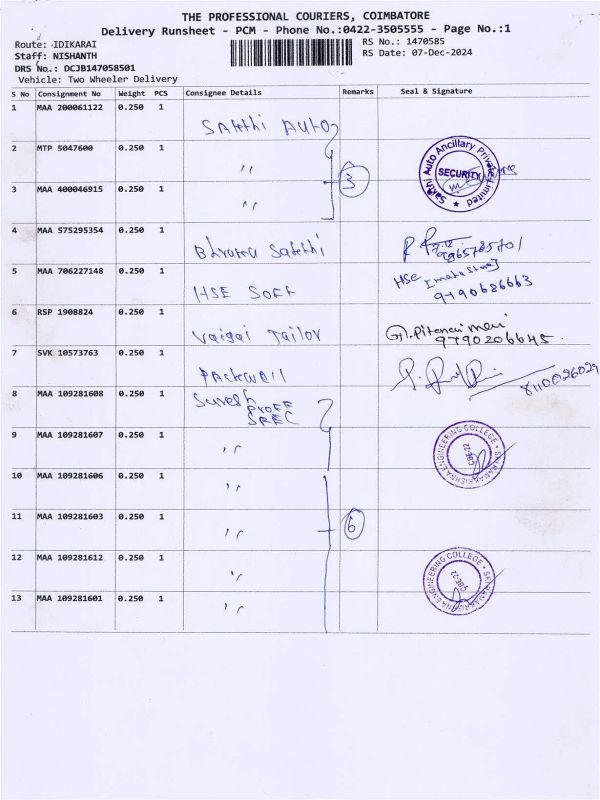 THE PROFESSIONAL COURIERS, COIMBATORE
Delivery Runsheet - PCM - Phone No.:0422-3505555 - Page No.:1
Route: IDIKARAI
RS No.: 1470585
Staff: NISHANTH
RS Date: 07-Dec-2024
DRS No.: DCJB147058501
Vehicle: Two Wheeler Delivery
S No Consignment No Weight PCS Consignee Details Remarks Seal & Signature
1 MAA 200061122 0.250 1 Sakthi Auto
2 MTP 5047600 0.250 1 〃
3 MAA 400046915 0.250 1 〃 3
Sakthi Auto Ancillary Private Limited
SECURITY
4 MAA 575295354 0.250 1 Sakthi
5 MAA 706227148 0.250 1 HSE SOFT HSE
9790686663
6 RSP 1908824 0.250 1 Vaigai Tailor
9790206645
7 SVK 10573763 0.250 1 Packwell
8110026029
8 MAA 109281608 0.250 1 Suresh
SREC
9 MAA 109281607 0.250 1 〃
SRI RAMAKRISHNA ENGINEERING COLLEGE
CBE-22
10 MAA 109281606 0.250 1 〃
11 MAA 109281603 0.250 1 〃 6
12 MAA 109281612 0.250 1 〃
SRI RAMAKRISHNA ENGINEERING COLLEGE
CBE-22
13 MAA 109281601 0.250 1 〃